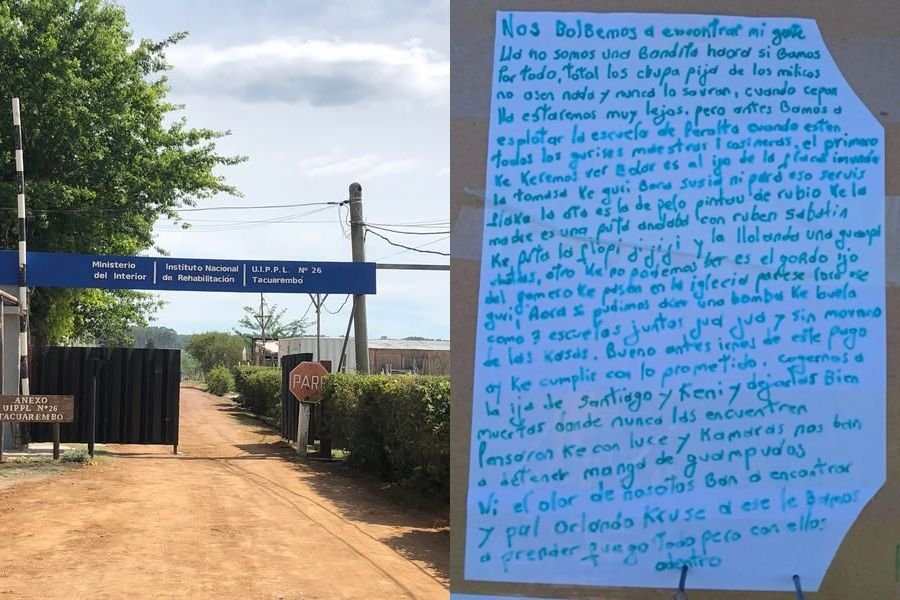 Ministerio
del Interior
Instituto Nacional
de Rehabilitación
U.I.P.P.L. Nº 26
Tacuarembó
PARE
ANEXO
UIPPL Nº26
TACUAREMBO
Nos Bolbemos a encontrar mi gente
Ya no somos una Bandita haora si Bamos
Por todo, total los chupa pija de los milicos
no asen nada y nunca lo savran, cuando cepan
Ya estaremos muy lejos, pero antes Bamos a
esplotar la escuela de Peralta cuando esten
todos los gurises maestras i cosineras, el primero
Ke Keremos ver Bolar es al ijo de la flaca inmunda
la tomasa Ke guri Bora susia ni para eso servis
flaka la otra es la de pelo pintau de rubio Ke la
madre es una puta andaba con ruben sabatin
Ke puta la flopi jijiji y la llolanda una guampa
otro Ke no podemos ber es el gordo ijo
del gomero Ke pasan en la iglecia parese loro ese
guri, Aora si pudimos aser una bomba Ke buela
como 3 escuelas juntas jua jua y sin movernos
de las kasas. Bueno antes irnos de este pago
ay Ke cumplir con lo prometido cogernos a
la ija de Santiago y Keni y dejarlas Bien
muertas donde nunca las encuentren
Pensaron Ke con luce y Kamaras nos ban
a detener manga de guampudos
Ni el olor de nosotos Ban a encontrar
Y pal Orlando Kruse a ese le Bamos
a prender fuego todo pero con ellos
adentro